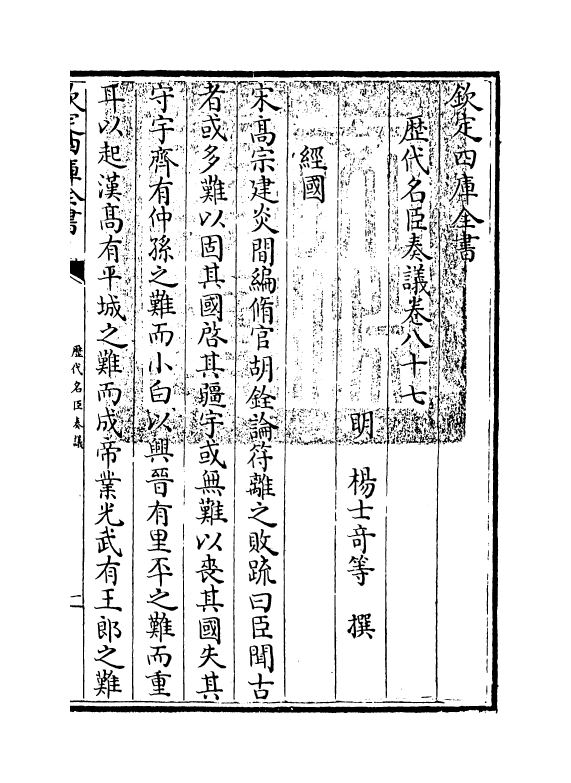 欽定四庫全書
歴代名臣奏議卷八十七
明 楊士竒等 撰
經國
宋髙宗建炎間編脩官胡銓論符離之敗疏曰臣聞古
者或多難以固其國啓其疆宇或無難以喪其國失其
守宇齊有仲孫之難而小白以興晉有里㔻之難而重
耳以起漢髙有平城之難而成帝業光武有王郎之難
欽定四庫全書
歷代名臣奏議
一